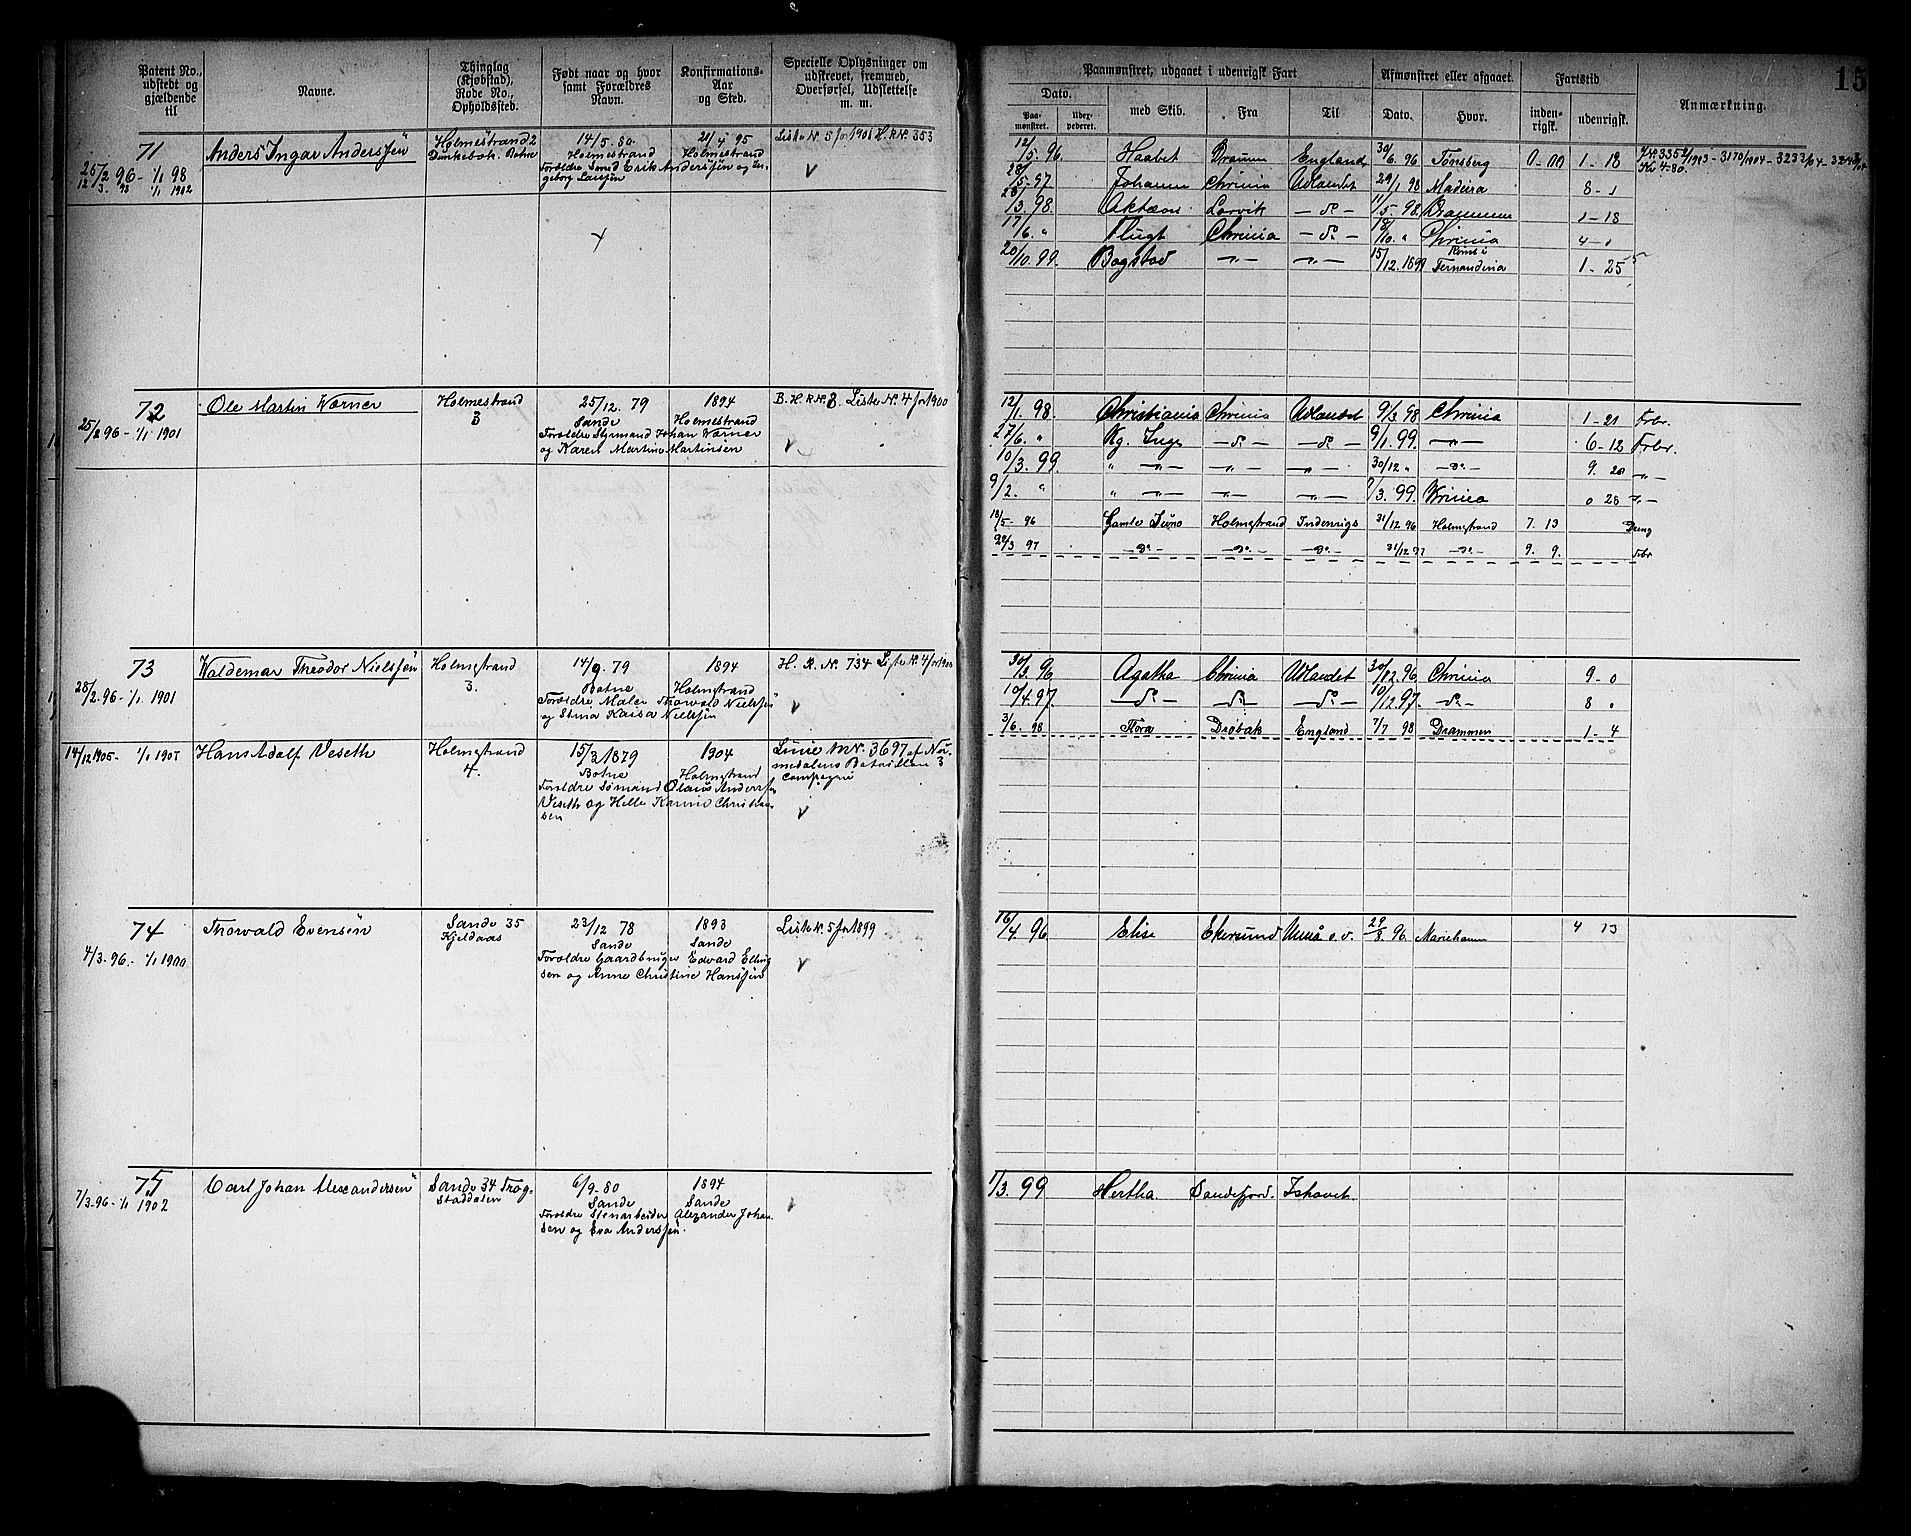 Patent No., udstedt og gjældende til
Navne.
Thinglag (Kjøbstad), Rode No., Opholdssted.
Født naar og hvor samt Forældres Navn.
Konfirmations- Aar og Sted.
Specielle Oplysninger om udskrevet, fremmed, Overførsel, Udslettelse m. m.
71
Anders Ingar Anderssen
Holmestrand 2
Botne
14/5. 80.
Holmestrand
Forældre Smed Erik Anderssen og Ingeborg Larssen
21/4 95
Holmestrand
Liste N. 5 for 1901 H. R. N. 353
25/2 96 - 1/1 98
12/3. 98 1/1 1902
72
Ole Martin Wærner
Holmestrand
3
25/12. 79
Sande
Forældre Styrmand Johan Wærner
og Karen Martine Martinsen
1894
Holmestrand
Liste N. 4 for 1900
25/2 96 - 1/1 1901
73
Waldemar Theodor Nielssen
Holmestrand
3.
14/9. 79
Botne
Forældre Maler Thorwald Nielssen
og Stina Kaisa Nielssen
1894
Holmestrand
H. R. N. 734 Liste N. 4 for 1900
28/2. 96 - 1/1 1901
14/12 1905 - 1/1 1907
Hans Adolf Veseth
Holmestrand
4.
15/3 1879
Botne
Forældre Sømand Olaus Anderssen
Veseth og Helle Karine Christian
sen
1904
Holmestrand
Linie M N. 3697 af Nu-
medalens Bataillon 3
Compagni
74
Thorvald Evensen
Sande 35
Kjeldaas
23/12 78
Sande
Forældre Gaardbruger Edvard Elling
sen og Anne Christine Hanssen
1893
Sande
Liste N. 5 for 1899
4/3. 96. - 1/1 1900
75
Carl Johan Alexandersen
Sande 34 Trog-
staddalen
6/9. 80
Sande
Forældre Stenarbeider Alexander Johan
sen og Eva Anderssen.
1894
Sande
7/3. 96 - 1/1 1902
Paamønstret, udgaaet i udenrigsk Fart
Afmønstret eller afgaaet.
Fartstid
Anmærkning.
15
Dato.
Paa- mønstret.
med Skib.
Fra
Til
Dato.
Hvor.
inden- rigsk.
udenrigsk.
12/5. 96. Haabet Drammen England 30/6. 96 Tønsberg 0-00 1-18
28/5. 97 Johanne Chrinia Udlandet 29/1 98 Madeira 8-1
/3. 98. Aktæon Larvik - do - 11/5. 98. Drammen 1-18
17/6. " Flugt Chrinia - do - 18/10. " Chrinia 4-0
20/10. 99. Bogstad - " - - " - 15/12. 1899 Rømt i Fernandina 1-25
12/1. 98. Christiania Chrinia Udlandet 9/3 98 Chrinia 1-21 Frbr.
27/6. " Kg. Inge - do - - do - 9/1. 99. - " - 6-12 Frbr.
10/3. 99. " - " - - " - - " - 30/12 " - do - 9. 20 - " -
9/2. " " - " - - " - - " - /3. 99. Krinia 0 28 - " -
18/5 - 96 Gamle Juno Holmestrand Indenrigs 31/12 96 Holmestrand 7. 13 Dreng
22/3 97 - do - - do - - do - 31/12 97 - do - 9. 9. Frbr
30/3. 96 Agatha Chrinia Udlandet 30/12. 96 Chrinia 9-0
10/4. 97. - do - do - do - 10/12. 97. - do - 8 0
3/6. 98 Flora Drøbak England 7/7 98 Drammen 1-4
16/4 96 Elise Ekersund Umeå o.v. 29/8. 96 Mariehamn 4 13
1/3. 99 Hertha Sandefjord. Ishavet